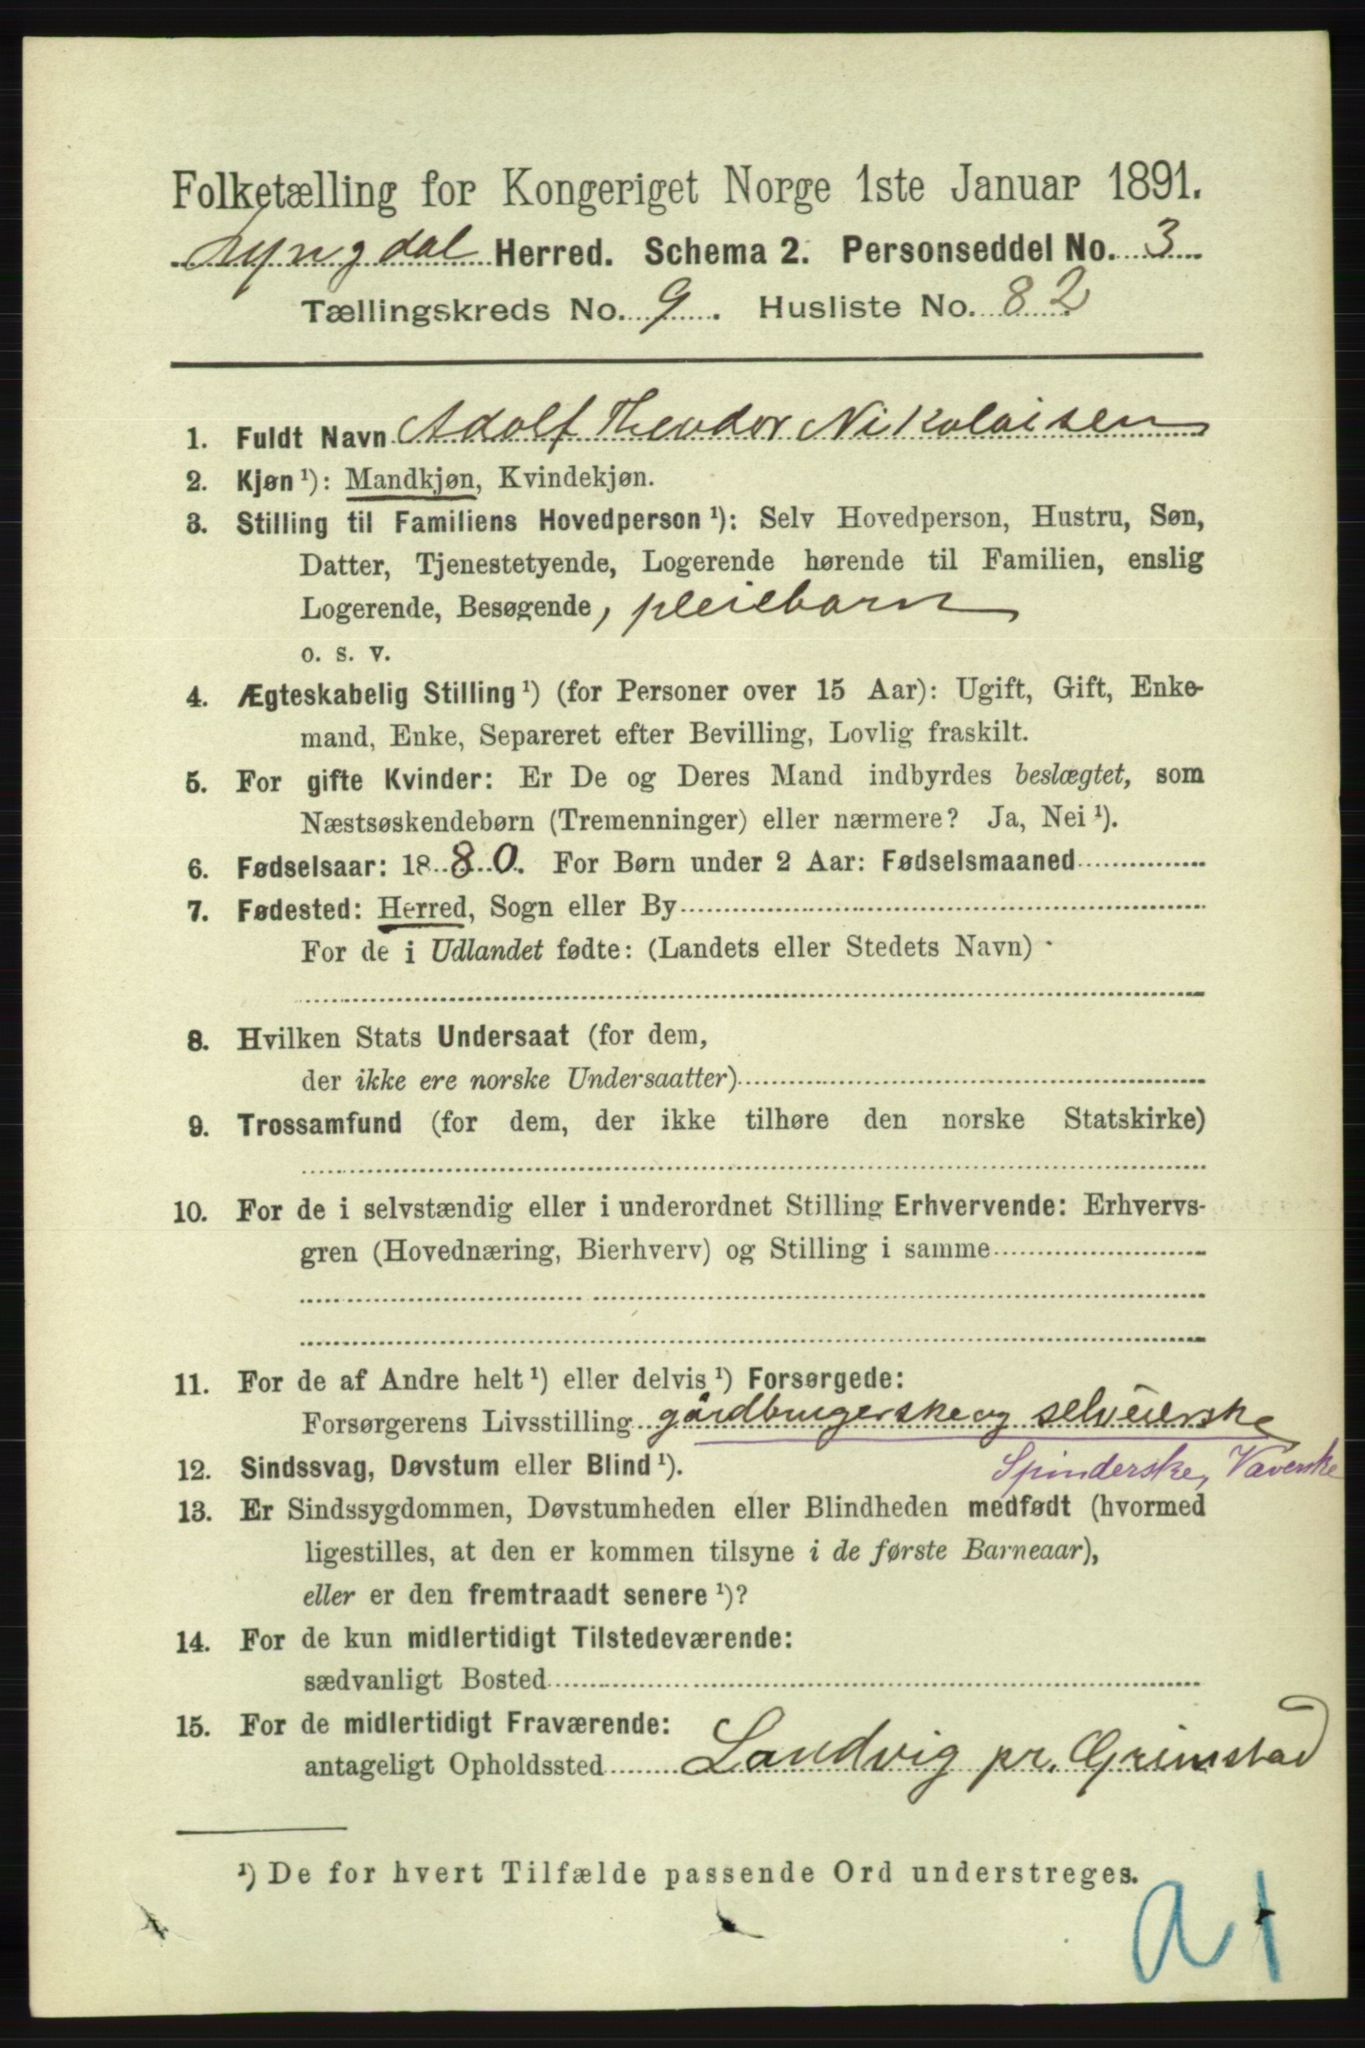 Folketælling for Kongeriget Norge 1ste Januar 1891.
Lyngdal Herred. Schema 2. Personseddel No. 3
Tællingskreds No. 9. Husliste No. 82
1. Fuldt Navn Adolf Theodor Nikolaisen
2. Kjøn ¹): Mandkjøn, Kvindekjøn.
3. Stilling til Familiens Hovedperson ¹): Selv Hovedperson, Hustru, Søn,
Datter, Tjenestetyende, Logerende hørende til Familien, enslig
Logerende, Besøgende, pleiebarn
o. s. v.
4. Ægteskabelig Stilling ¹) (for Personer over 15 Aar): Ugift, Gift, Enke-
mand, Enke, Separeret efter Bevilling, Lovlig fraskilt.
5. For gifte Kvinder: Er De og Deres Mand indbyrdes beslægtet, som
Næstsøskendebørn (Tremenninger) eller nærmere? Ja, Nei ¹).
6. Fødselsaar: 1880. For Børn under 2 Aar: Fødselsmaaned
7. Fødested: Herred, Sogn eller By
For de i Udlandet fødte: (Landets eller Stedets Navn)
8. Hvilken Stats Undersaat (for dem,
der ikke ere norske Undersaatter)
9. Trossamfund (for dem, der ikke tilhøre den norske Statskirke)
10. For de i selvstændig eller i underordnet Stilling Erhvervende: Erhvervs-
gren (Hovednæring, Bierhverv) og Stilling i samme
11. For de af Andre helt ¹) eller delvis ¹) Forsørgede:
Forsørgerens Livsstilling gårdbrugerske og selveierske
12. Sindssvag, Døvstum eller Blind ¹). Spinderske, Væverske
13. Er Sindssygdommen, Døvstumheden eller Blindheden medfødt (hvormed
ligestilles, at den er kommen tilsyne i de første Barneaar),
eller er den fremtraadt senere ¹)?
14. For de kun midlertidigt Tilstedeværende:
sædvanligt Bosted
15. For de midlertidigt Fraværende:
antageligt Opholdssted Landvig pr. Grimstad
¹) De for hvert Tilfælde passende Ord understreges.
a 1